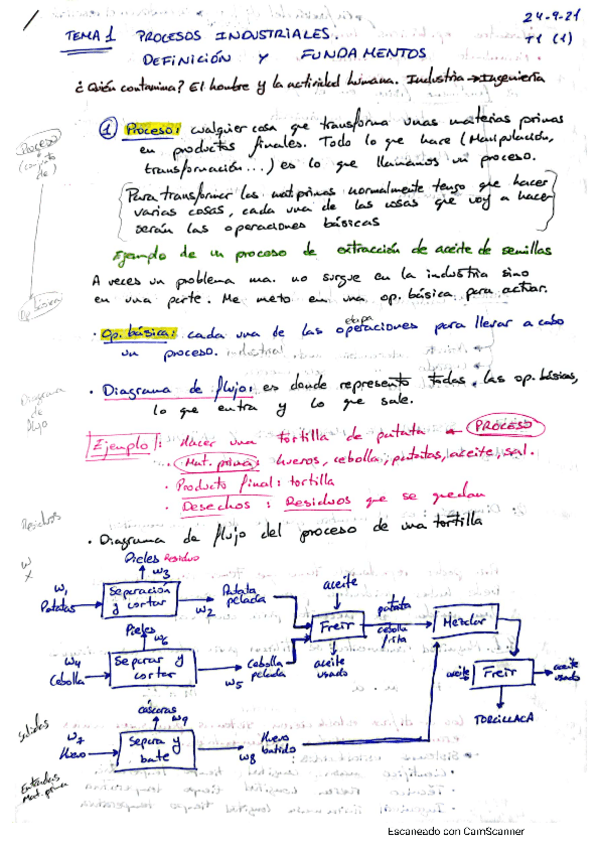 24-9-21
T1 (1)
TEMA 1 PROCESOS INDUSTRIALES.
DEFINICIÓN Y FUNDAMENTOS
¿Quién contamina? El hombre y la actividad humana. Industria → Ingeniería
① Proceso: cualquier cosa que transforma unas materias primas
en productos finales. Todo lo que hace (Manipulación,
transformación...) es lo que llamamos un proceso.
Proceso
(conjunto
de)
Para transformar las mat. primas normalmente tengo que hacer
varias cosas, cada una de las cosas que voy a hacer
serán las operaciones básicas
Ejemplo de un proceso de extracción de aceite de semillas
A veces un problema ma. no surge en la industria sino
en una parte. Me meto en una op. básica para actuar.
Op. básica
etapa
· Op. básica: cada una de las operaciones para llevar a cabo
un proceso. industrial.
Diagrama
de
flujo
· Diagrama de flujo: es donde represento todas las op. básicas,
lo que entra y lo que sale.
Ejemplo: Hacer una tortilla de patata → PROCESO
· Mat. prima: huevos, cebolla, patatas, aceite, sal.
· Producto final: tortilla
· Desechos: Residuos que se quedan
Residuos
· Diagrama de flujo del proceso de una tortilla
W
X
Pieles Residuo
W3
W1
Patatas
Separación
y cortar
W2
Patata
pelada
aceite
Freír
aceite
usado
patata
cebolla
frita
Mezclar
Pieles
W6
W4
Cebolla
Separar y
cortar
W5
Cebolla
pelada
aceite
Freír
aceite
usado
TORCILLACA
cáscaras
W9
W7
Huevo
Separa y
bate
W8
Huevo
batido
Salidas
Entradas
Mat. prima
Escaneado con CamScanner